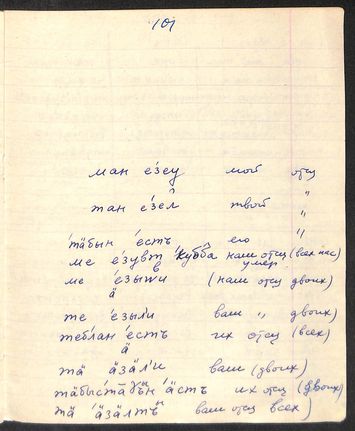 101
ман е́зеу мой отец
тан е́зел твой "
тӓбын е́сть его "
ме е́зувт ку́бба наш отец (всех нас)
умер
ме е́зыви (наш отец двоих)
те е́зыли ваш " двоих)
теблан е́сть их отец (всех)
тӓ ӓзӓли ваш (двоих)
ӓ́сть их отец (двоих)
тӓ ӓ́зӓлтъ ваш отец всех)